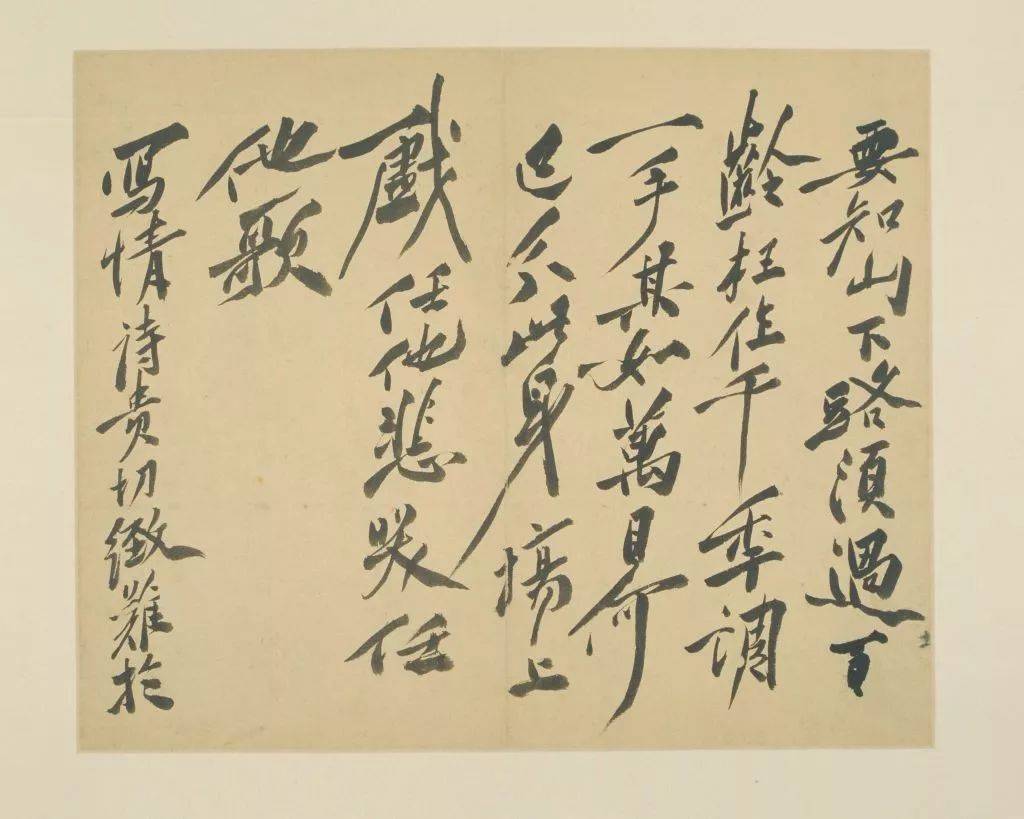 要知山下路須過百
齡枉作千年調
一手其如萬目何
已分此身場上
戲任他悲咲任
他歌
寫情詩貴切難於